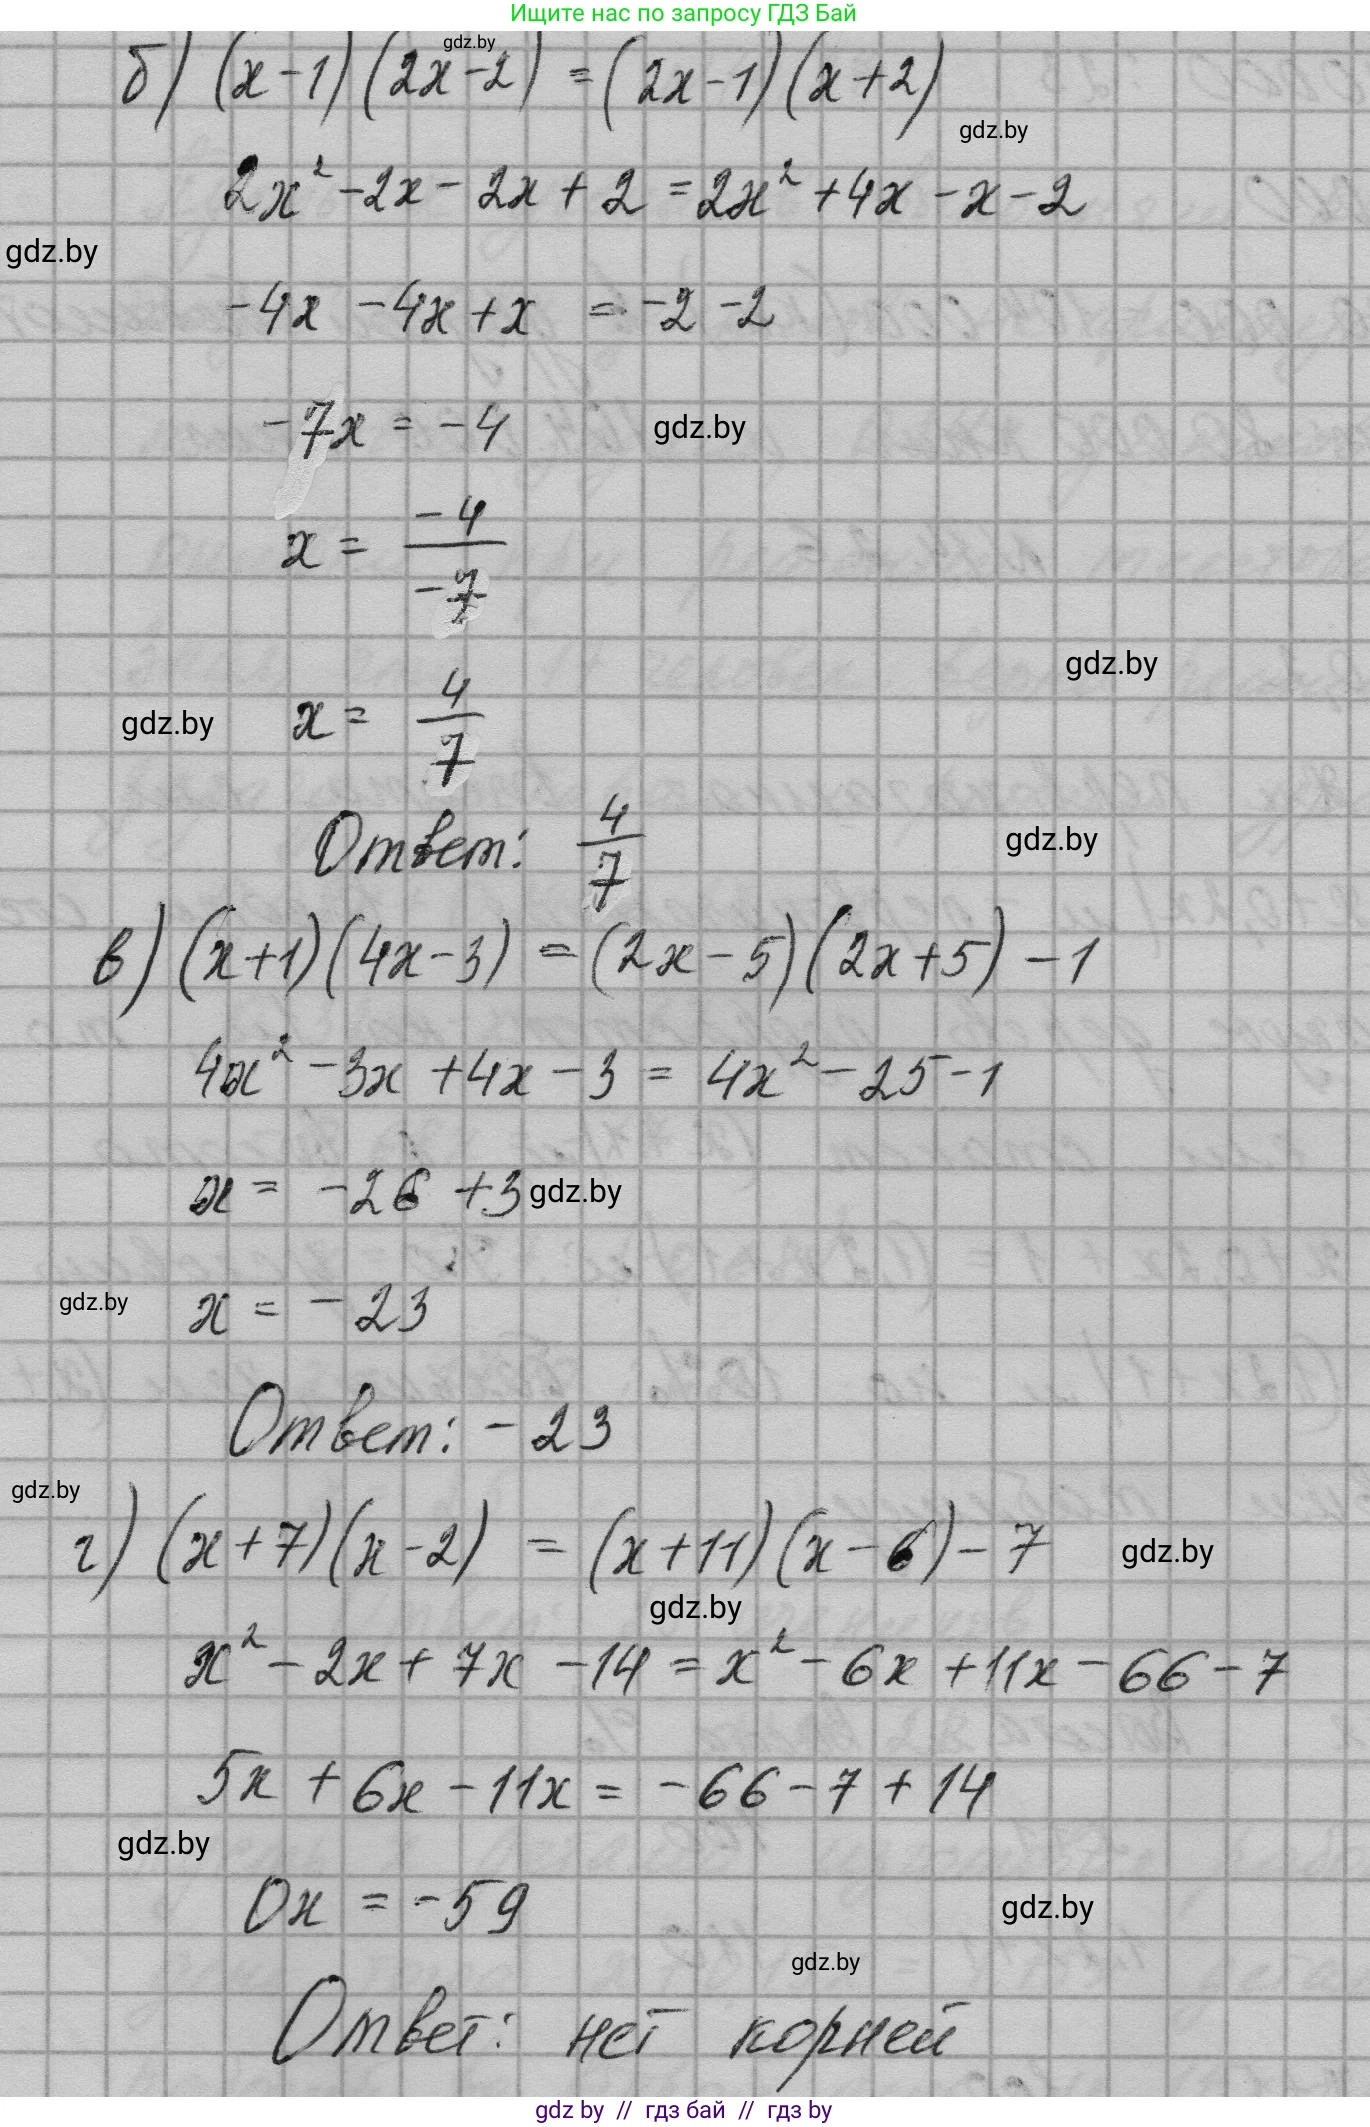 Ищите нас по запросу ГДЗ Бай
gdz.by
б) (x-1)(2x-2) = (2x-1)(x+2)
gdz.by
2x² -2x - 2x + 2 = 2x² +4x - x - 2
gdz.by
-4x -4x + x = -2 -2
-7x = -4
gdz.by
x = -4/-7
gdz.by
gdz.by
x = 4/7
Ответ: 4/7
gdz.by
в) (x+1)(4x-3) = (2x-5)(2x+5) -1
4x² -3x +4x -3 = 4x² -25 -1
x = -26 +3
gdz.by
gdz.by
x = -23
Ответ: -23
gdz.by
г) (x+7)(x-2) = (x+11)(x-6) - 7
gdz.by
gdz.by
x² - 2x + 7x - 14 = x² - 6x + 11x - 66 - 7
5x + 6x - 11x = -66 - 7 + 14
gdz.by
0x = -59
gdz.by
gdz.by
Ответ: нет корней
gdz by // гдз бай // гдз by